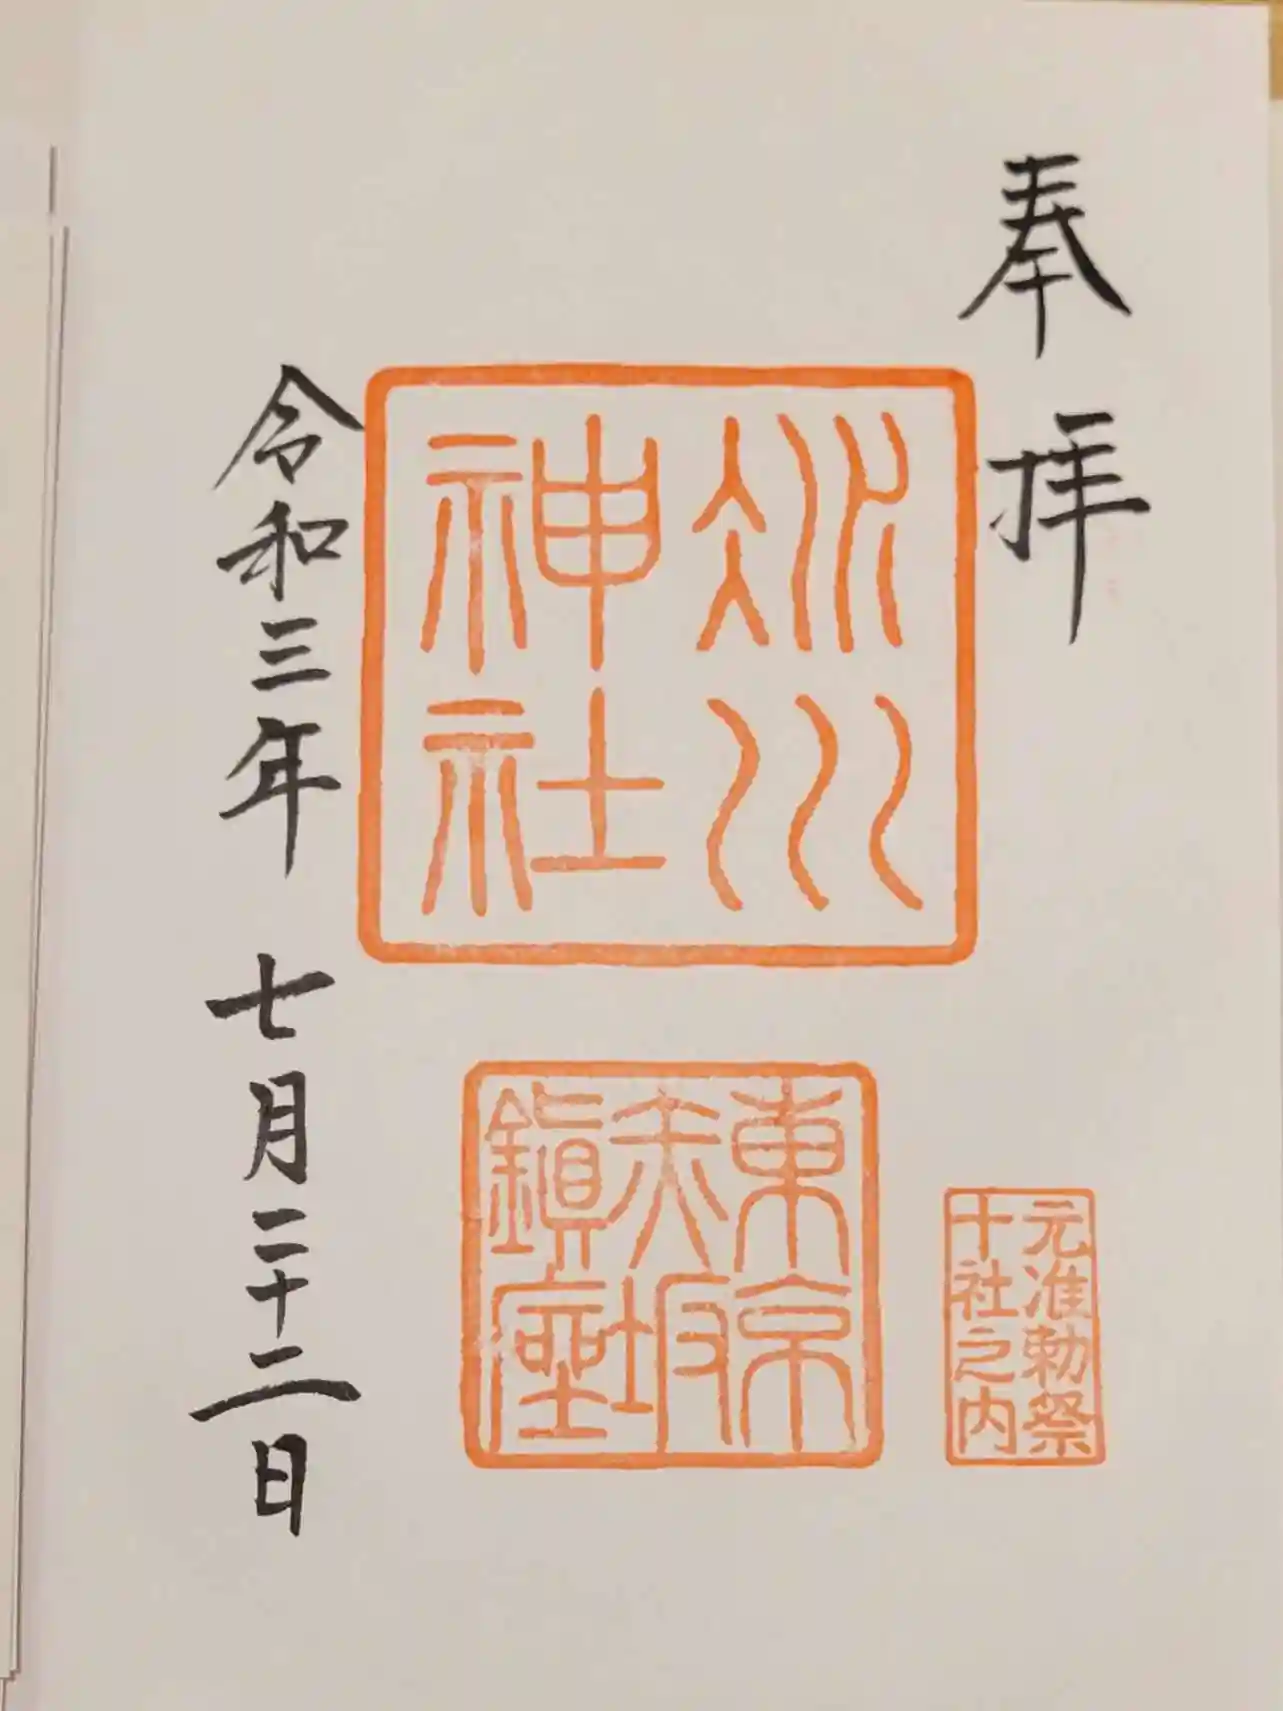 奉拝
氷川
神社
東京
赤坂
鎮座
元准勅祭
十社之内
令和三年 七月二十二日